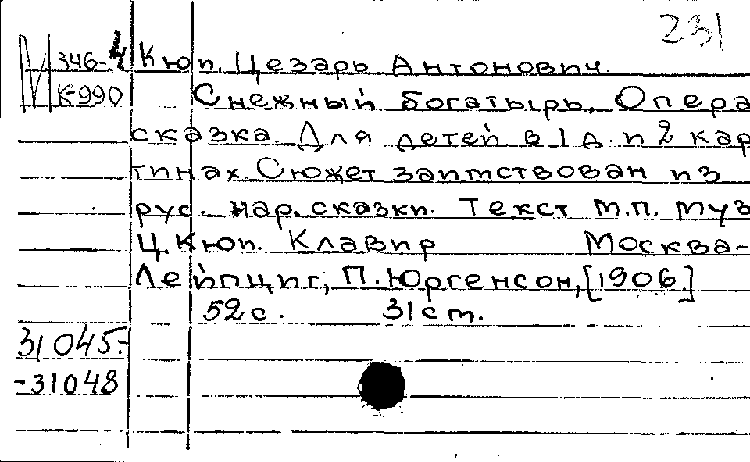 231
346-4 Кюи, Цезарь Антонович.
К-990 Снежный богатырь. Опера
сказка. Для детей в 1 д. и 2 кар
тинах. Сюжет заимствован из
рус. нар. сказки. Текст М.П. Муз
Ц. Кюи. Клавир Москва-
Лейпциг, П. Юргенсон, [1906.]
52 с. 31 ст.
31045-
-31048